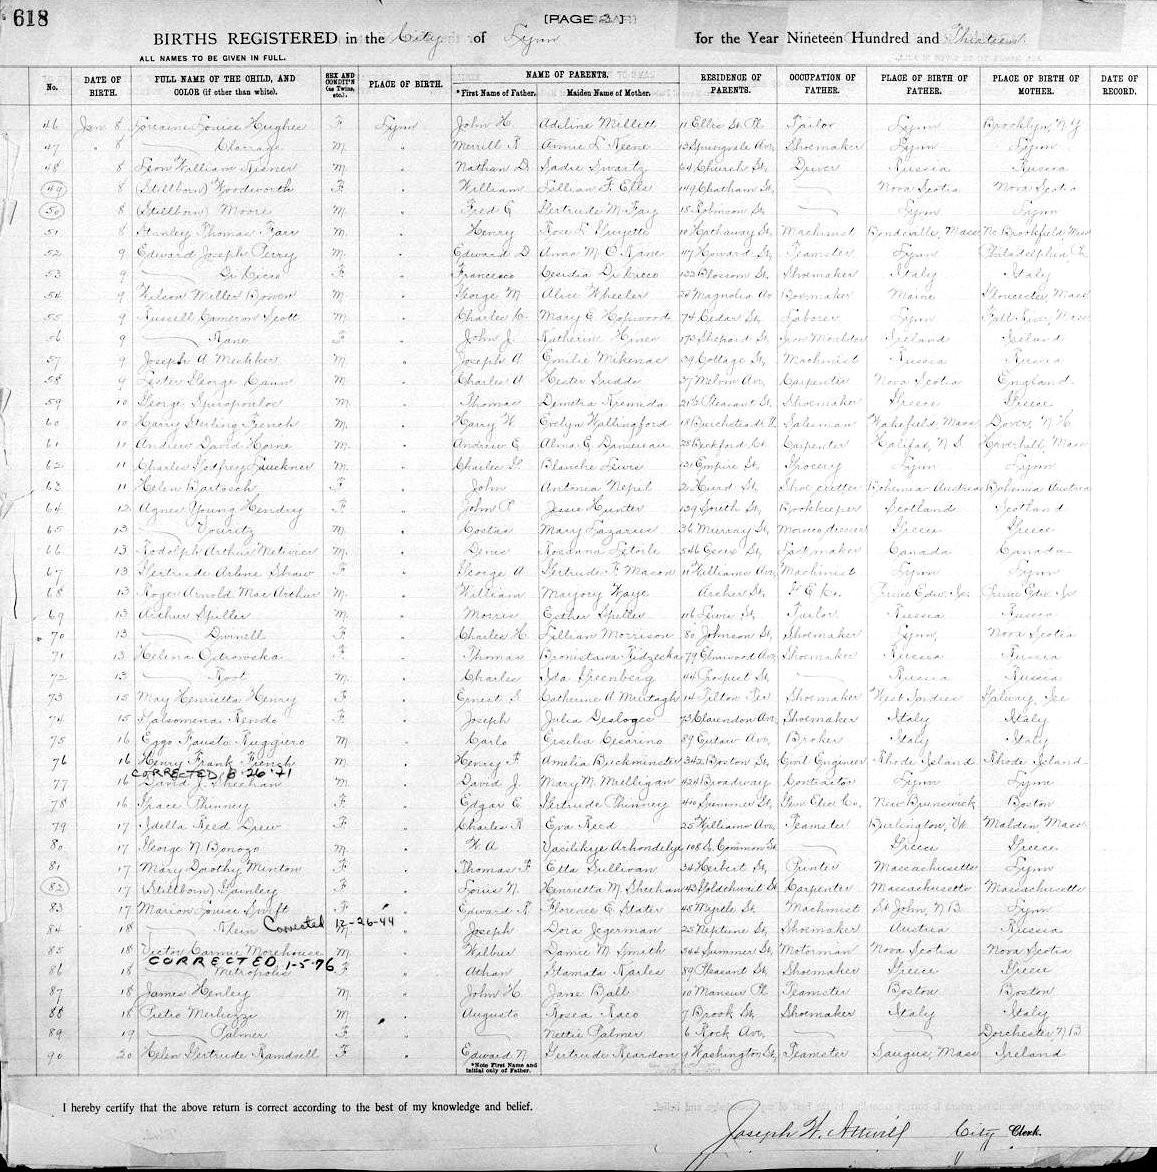 618
[PAGE 3]
BIRTHS REGISTERED in the City of Lynn for the Year Nineteen Hundred and Thirteen
ALL NAMES TO BE GIVEN IN FULL.
No. DATE OF BIRTH. FULL NAME OF THE CHILD, AND COLOR (if other than white). SEX AND CONDIT'N (as Twins, etc.). PLACE OF BIRTH. NAME OF PARENTS. *First Name of Father. Maiden Name of Mother. RESIDENCE OF PARENTS. OCCUPATION OF FATHER. PLACE OF BIRTH OF FATHER. PLACE OF BIRTH OF MOTHER. DATE OF RECORD.
46 Jan 8 Lorraine Louise Hughes F Lynn John H Adeline Millett 11 Ellis St Pl Tailor Lynn Brooklyn, N Y
47 " 8 Clarrage M. " Merrill R Annie L Keene 13 Springvale Av, Shoemaker Lynn Lynn
48 8 Leon William M. " Nathan D Sadie Swartz 64 Church St, Driver Russia Russia
49 8 (Stillborn) Woodworth F " William Lillian F. Ells 149 Chatham St, Nova Scotia Nova Scotia
50 8 (Stillborn) Moore M. " Fred G Gertrude M Fay 18 Robinson St, Lynn Lynn
51 8 Stanley Thomas Farr M. " Henry Rose L 10 Hathaway St, Machinist Mass No Brookfield Mass
52 9 Edward Joseph Perry M. " Edward D Anna M O'Kane 47 Howard St, Teamster Lynn Philadelphia Pa
53 9 Di Cicco F " Francesco Cesidia Di Cicco 122 Blossom St, Shoemaker Italy Italy
54 9 Wilson Miller Bowen M. " George M Alice Wheeler 25 Magnolia Av Boxmaker Maine Gloucester, Mass
55 9 Russell Cameron Scott M. " Charles Mary E Hopwood 74 Cedar St, Laborer Lynn Fall River, Mass
56 9 Kane F " John J. Katherine 173 Shepard St, Iron Moulder Ireland Ireland
57 9 Joseph A M " Joseph A Emilie 39 Cottage St, Machinist Russia Russia
58 9 Lester George Cann M. " Charles A Hester 27 Melvin Av, Carpenter Nova Scotia England
59 10 George Spiropoulos M. " Thomas Demetra 212 Pleasant St, Shoemaker Greece Greece
60 10 Harry Sterling French M. " Harry W. Evelyn Wallingford 18 Salesman Wakefield, Mass Dover, N H
61 10 Andrew David Horne M. " Andrew E Alma G 28 Beckford Ct Carpenter Halifax, N S Haverhill Mass
62 11 Charles Godfrey Faulkner M. " Charles G. Blanche Lewis 131 Empire St, Grocery Lynn Lynn
63 11 Helen Bartosch F " John Antonia Nepil 21 Hurd St, Shoe cutter Bohemia Austria Bohemia Austria
64 12 Agnes Young Hendry F " John P Jessie Hunter 139 South St, Bookkeeper Scotland Scotland
65 13 M. " Costas Mary Lazaris 36 Murray St, Morocco dresser Greece Greece
66 13 Rodolph Arthur Metivier M. " Denis Roseanna Letoile 546 Essex St, Lastmaker Canada Canada
67 13 Gertrude Arline Shaw F " George A Gertrude F Mason 11 Williams Av, Machinist Lynn Lynn
68 13 Roger Arnold Mac Arthur M. " William Marjory Kaye Archer St, G E Co. Prince Edw. Is. Prince Edw. Is
69 13 Arthur Spiller M. " Morris Esther Spiller 116 Lewis St, Tailor Russia Russia
70 13 Dwinell F " Charles H. Lillian Morrison 80 Johnson St, Shoemaker Lynn, Nova Scotia
71 13 Helena Ostrowska F " Thomas Bronistawa 79 Elmwood Av, Shoemaker Russia Russia
72 13 Root M. " Charles Ida Greenberg 44 Prospect St, Russia Russia
73 15 May Henrietta Henry F " Ernest S. Catherine A Murtagh 14 Tilton Ter Shoemaker West Indies Galway, Ire
74 15 F. " Joseph Julia 73 Clarendon Av, Shoemaker Italy Italy
75 16 Fausto Ruggiero M " Carlo Ersilia Cesarino 89 Eutaw Av, Broker Italy Italy
76 16 Henry Frank French M. " Henry F. Amelia Buckminster 342 Boston St, Civil Engineer Rhode Island Rhode Island
CORRECTED 8-26-71
77 16 David J. Sheehan M. " David J. Mary M. Mulligan 424 Broadway Contractor Lynn Lynn
78 16 Grace Phinney F " Edgar E Gertrude Phinney 440 Summer St, Gen Elec Co, New Brunswick Boston
79 17 Idella Reed Drew F " Charles R Eva Reed 25 Williams Av, Teamster Burlington, Vt Malden Mass
80 17 George N Bonozo M. " N A Vasilikaye Arhondelye 108 S. Common St Greece Greece
81 17 Mary Dorothy Minton F " Thomas F Etta Sullivan 34 Herbert St, Printer Massachusetts Lynn
82 17 (Stillborn) Gainley F " Louis N. Henrietta M Sheehan 43 Goldthwait St Carpenter Massachusetts Massachusetts
83 17 Marion Louise Swift F " Edward R Florence E Slater 48 Myrtle St, Machinist St John, N B. Lynn
84 18 Klein Corrected 12-26-44 " Joseph Dora Jegerman 25 Neptune St, Shoemaker Austria Russia
85 18 Victor Carmi Morehouse M. " Wilbur M Smith 344 Summer St, Motorman Nova Scotia Nova Scotia
CORRECTED 1-5-76
86 18 Metropolis F " Athan Stamata Karles 89 Pleasant St, Shoemaker Greece Greece
87 18 James Henley M. " John H. Jane Ball 10 Mansur Pl Teamster Boston Boston
88 18 Pietro Merluzzi M " Augusto Rosca Raco 7 Brook St, Shoemaker Italy Italy
89 19 Palmer F " Nettie Palmer 6 Rock Av, Dorchester N B
90 20 Helen Gertrude Ramsdell F " Edward N. Gertrude Reardon 9 Washington St, Teamster Saugus, Mass Ireland
*Note First Name and initial only of Father.
I hereby certify that the above return is correct according to the best of my knowledge and belief.
Joseph W. Attwill City Clerk.